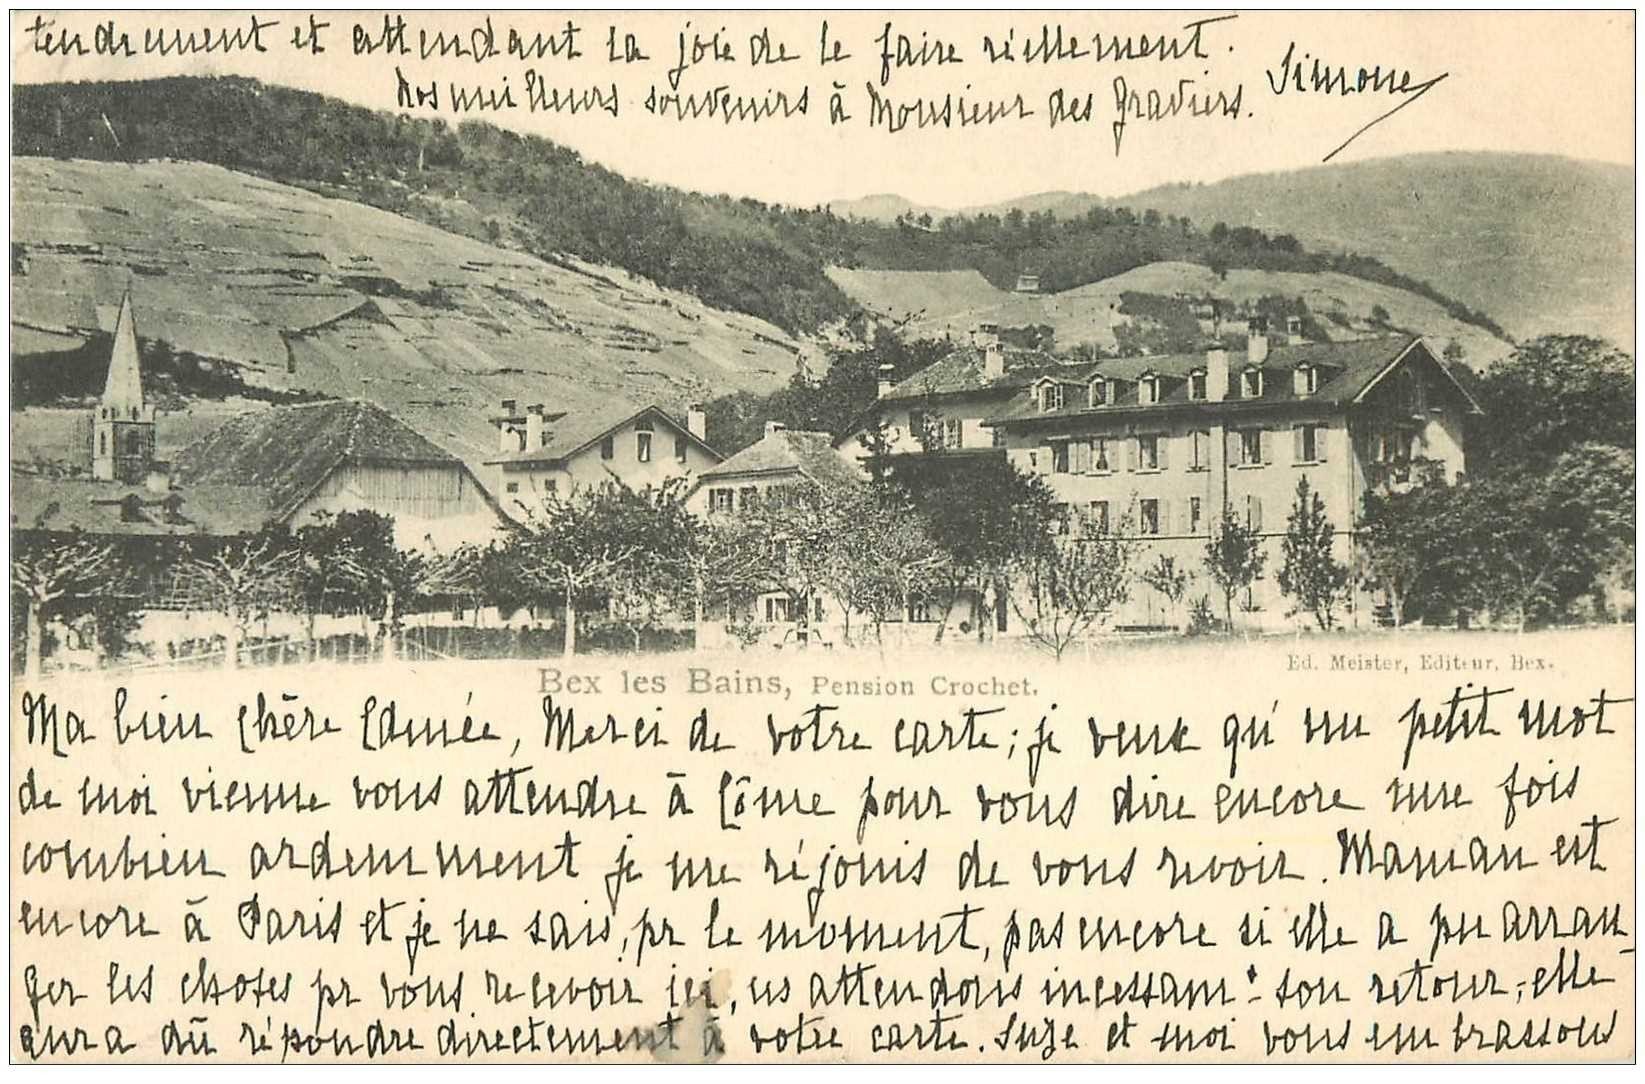 tendrement et attendant la joie de le faire réellement.
Nos meilleurs souvenirs à Monsieur des Graviers. Simone
Bex les Bains, Pension Crochet.
Ed. Meister, Editeur, Bex.
Ma bien chère Edmée, Merci de votre carte; je veux qu'un petit mot
de moi vienne vous attendre à Côme pour vous dire encore une fois
combien ardemment je me réjouis de vous revoir. Maman est
encore à Paris et je ne sais, pr le moment, pas encore si elle a pu arran
ger les choses pr vous recevoir ici, ns attendons incessamt son retour; elle
aura dû répondre directement à votre carte. Suze et moi vous embrassons